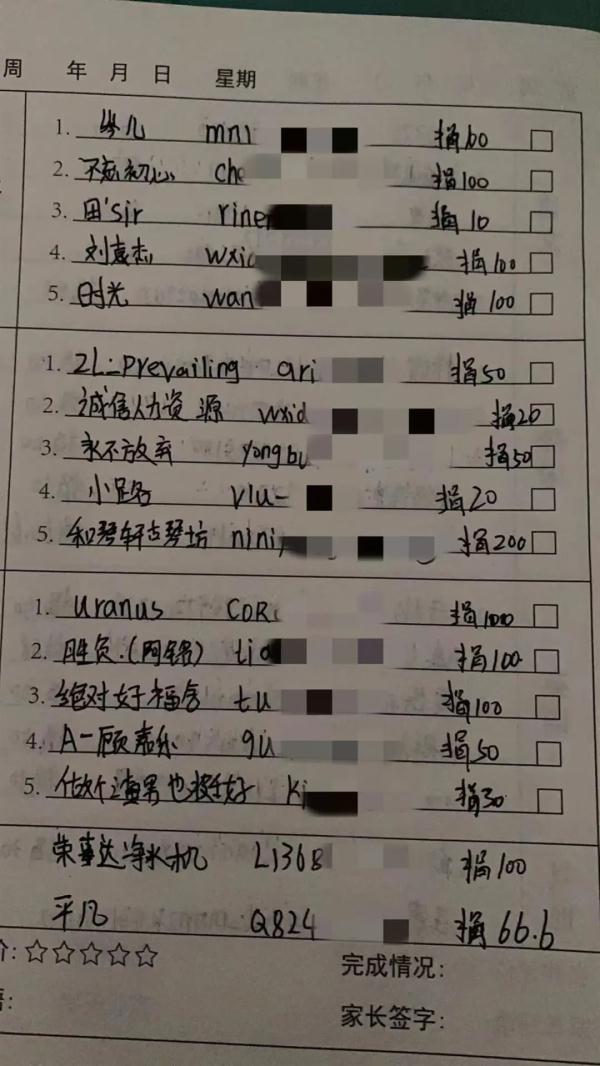 周 年 月 日 星期
1. 幾 mnl 捐60
2. 不忘初心 che 捐100
3. 田'sir riner 捐10
4. 刘嘉杰 wxid 捐100
5. 时光 wan 捐100
1. ZL-Prevailing qri 捐50
2. 诚信人力资源 wxid 捐20
3. 永不放弃 yongbu 捐50
4. 小路 viu- 捐20
5. 和琴轩古琴坊 nini 捐200
1. Uranus CoR 捐1000
2. 胜负.(网络) tia 捐100
3. 绝对好福舍 tu 捐100
4. A-顾嘉乐 gu 捐50
5. 做个渣男也挺好 ki 捐30
荣事达净水机 L1368 捐100
平凡 Q824 捐66.6
价:☆☆☆☆☆ 完成情况:
语: 家长签字: